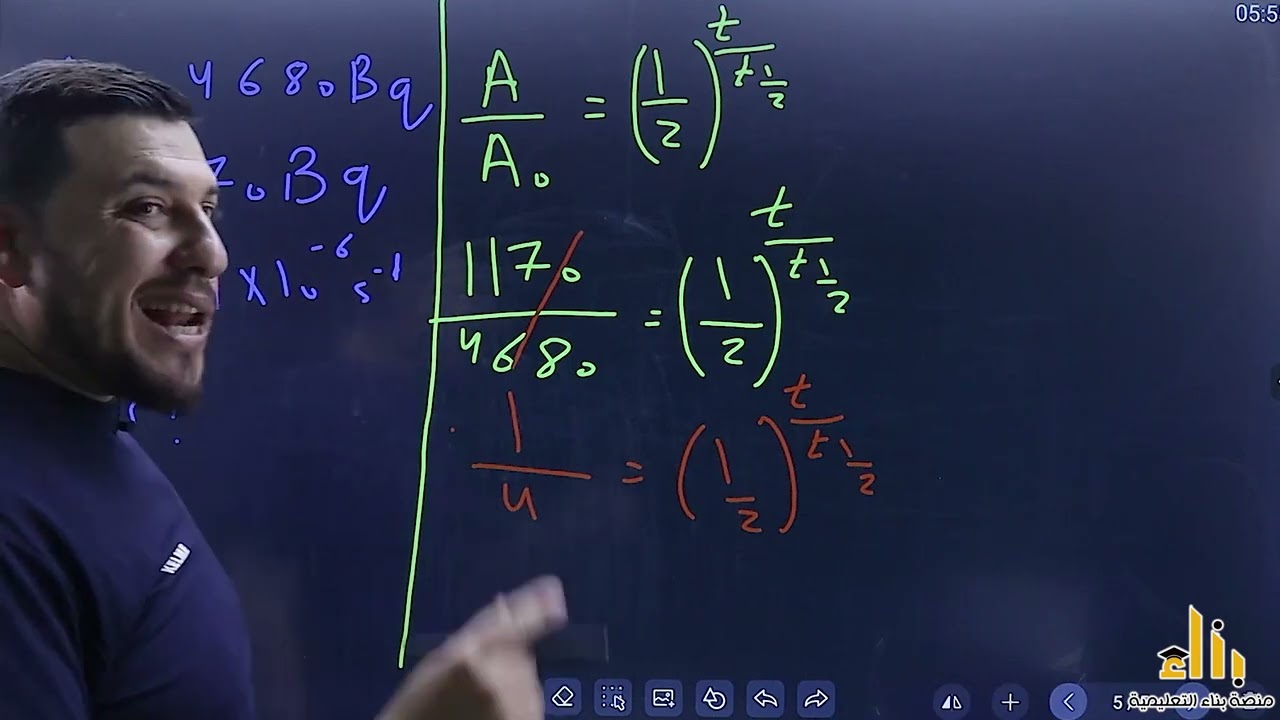 05:5
4680 Bq
70 Bq
x10^-6 s^-1
A/A0 = (1/2)^(t/t1/2)
1170/4680 = (1/2)^(t/t1/2)
1/4 = (1/2)^(t/t1/2)
KELME
5
بناء
منصة بناء التعليمية